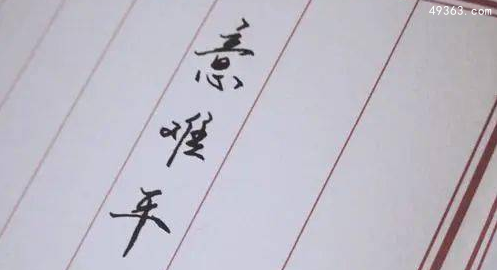 49363.com
意难平